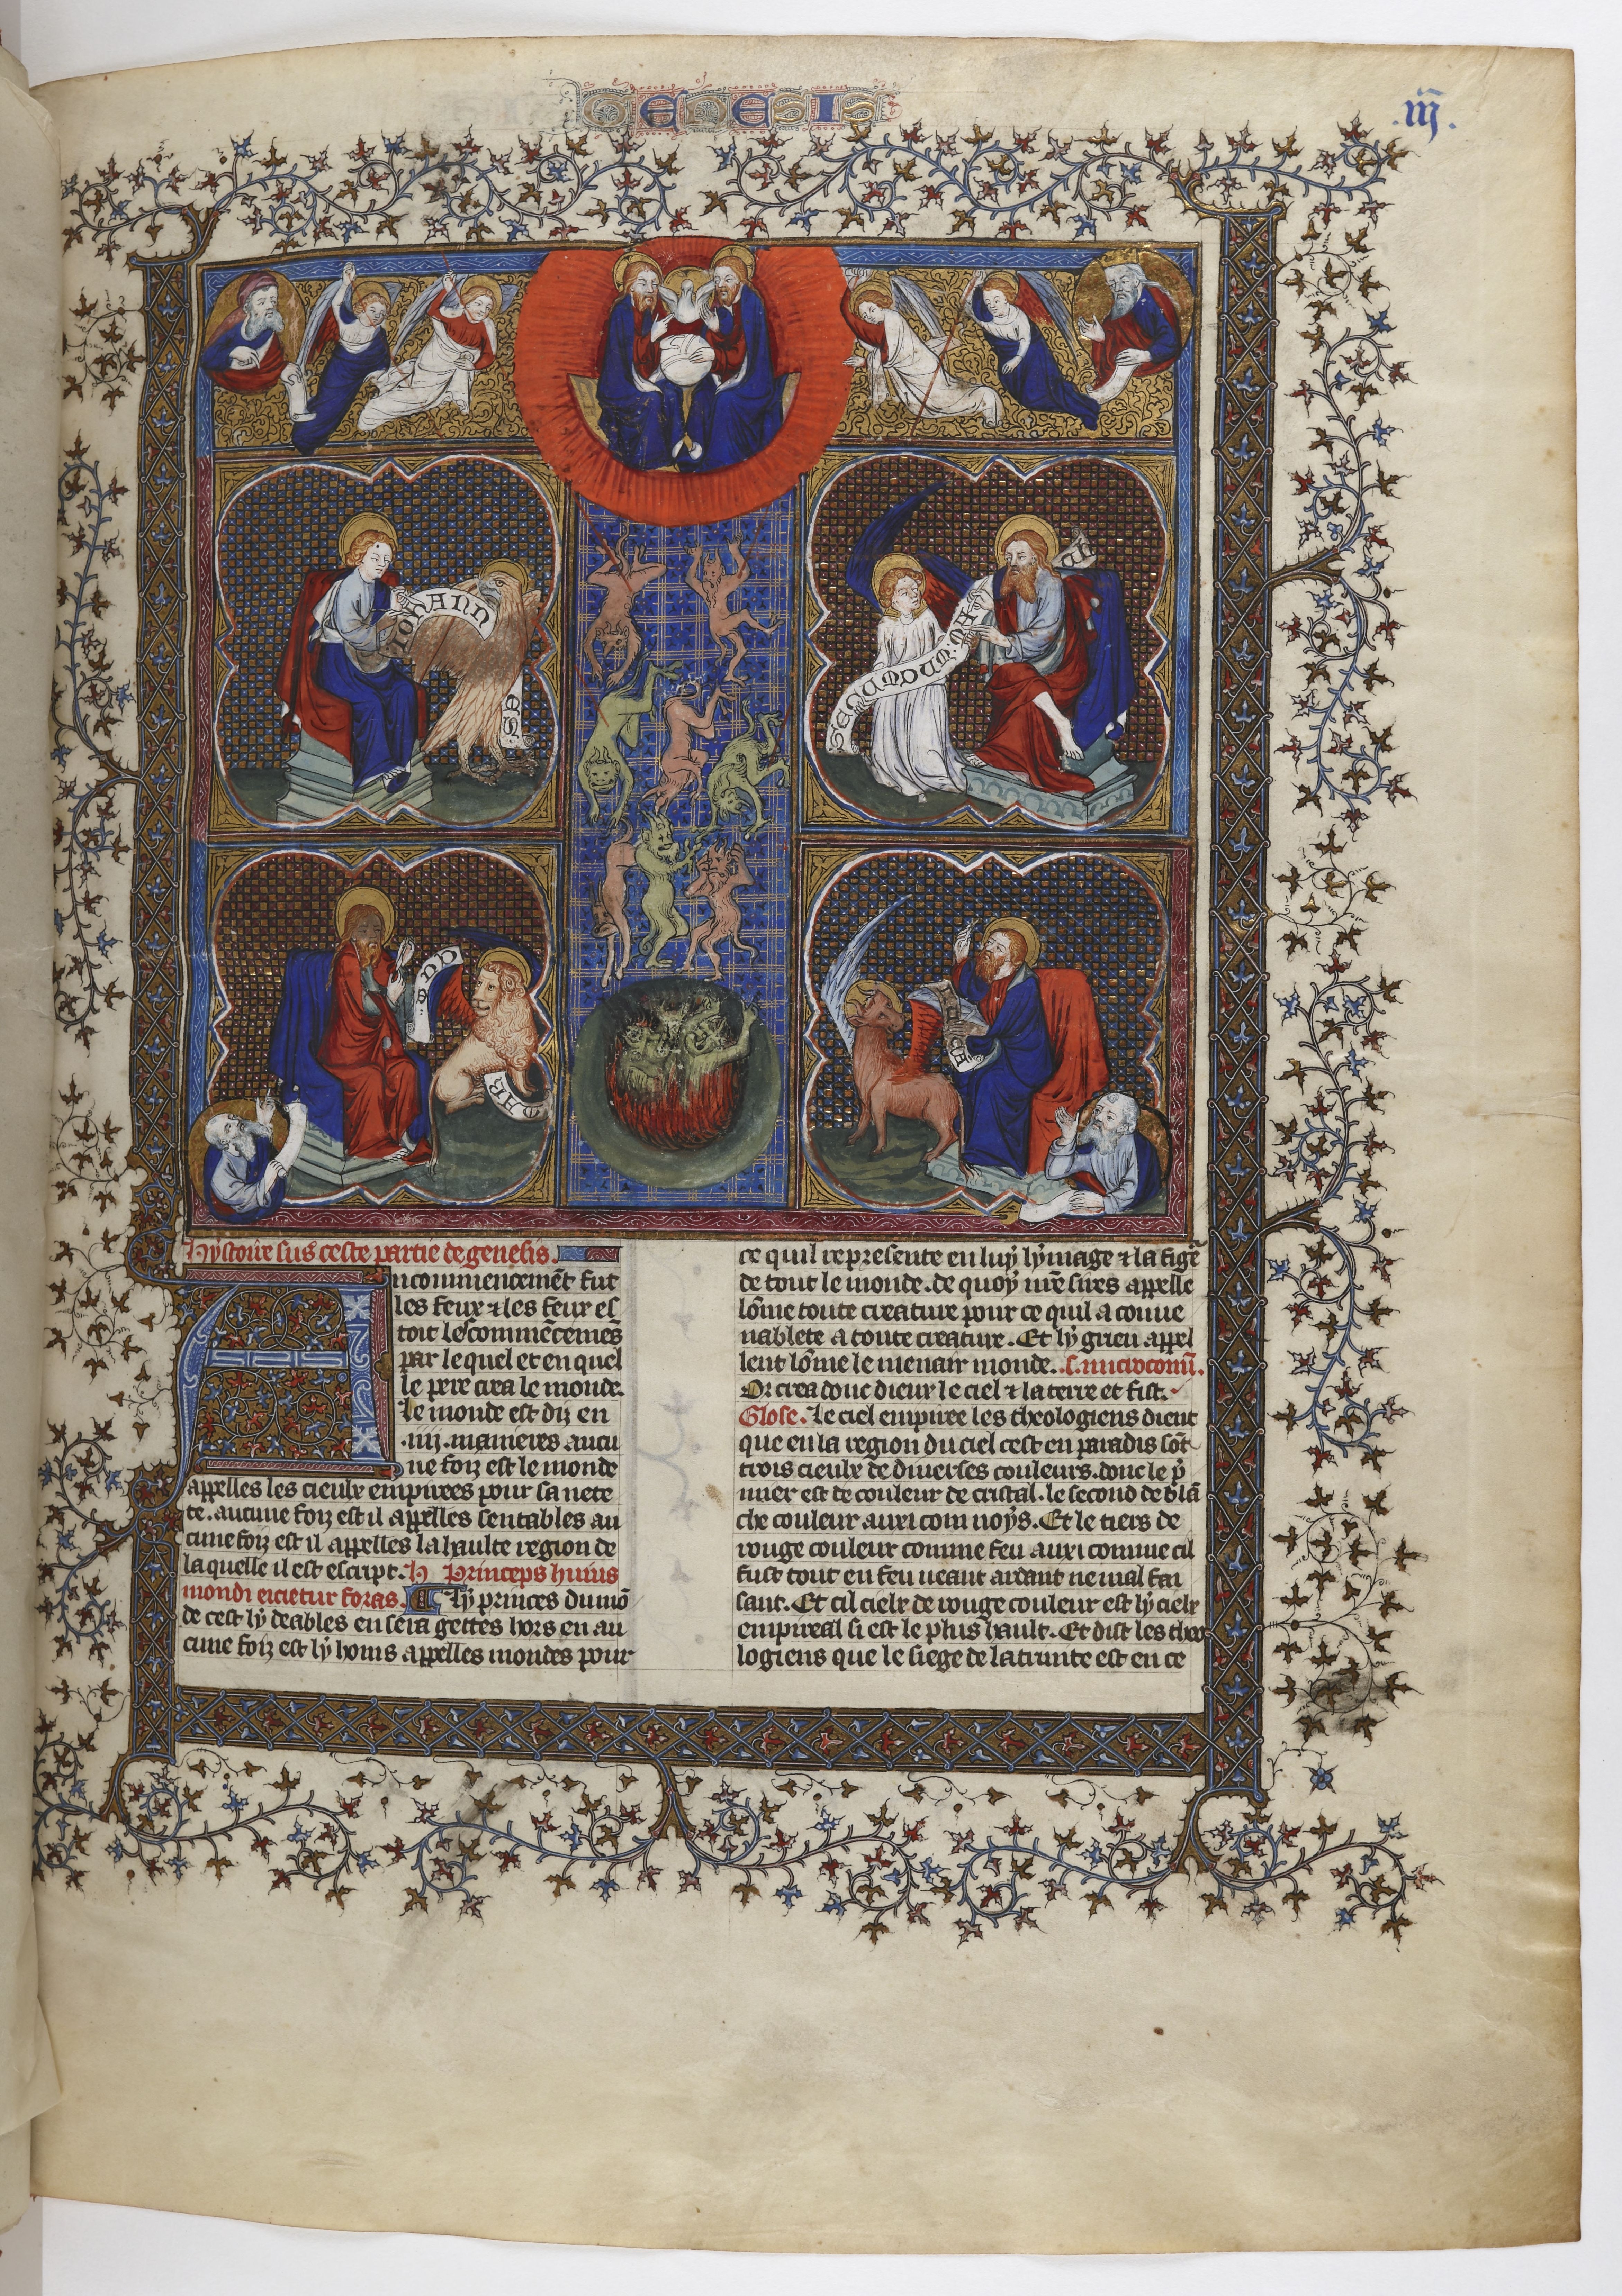 GENESIS
.iij.
IOHANN
ES
SECUNDUM MA
MAR
Hystoire sus ceste partie de genesis.
A
ncommencemēt fut
les feux ⁊ les feux es
toit le commēcemēs
par le quel et en quel
le pere crea le monde.
Le monde est diz en
.iiij. manieres aucu
ne foiz est le monde
appelles les cieulx empirees pour sa nete
te. aucune foiz est il appelles sentables au
cune foiz est il appelles la haulte region de
la quelle il est escript. Princeps huius
mondi eicietur foras. Ly princes du mō
de cest ly deables en sera gettes hors en au
cune foiz est ly homs appelles mondes pour
ce quil represente en luy lymage ⁊ la figē
de tout le monde. de quoy nr̄e sires appelle
lōme toute creature pour ce quil a conue
nablete a toute creature. Et ly grieu appel
lent lōme le menair monde.
Or crea donc dieux le ciel ⁊ la terre et fist.
Glose. Le ciel empiree les theologiens dient
que en la region du ciel cest en paradis sōt
trois cieulx de diuerses couleurs. donc le p̄
mier est de couleur de cristal. le second de blā
che couleur auxi com noys. Et le tiers de
rouge couleur comme feu auxi comme cil
fust tout en feu neant ardant ne mal fai
sant. Et cil cielx de rouge couleur est ly cielx
empireal si est le plus hault. Et dist les theo
logiens que le siege de la trinite est en ce